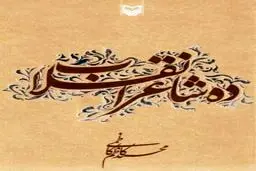 ده شاعر انقلاب
محمدکاظم کاظمی